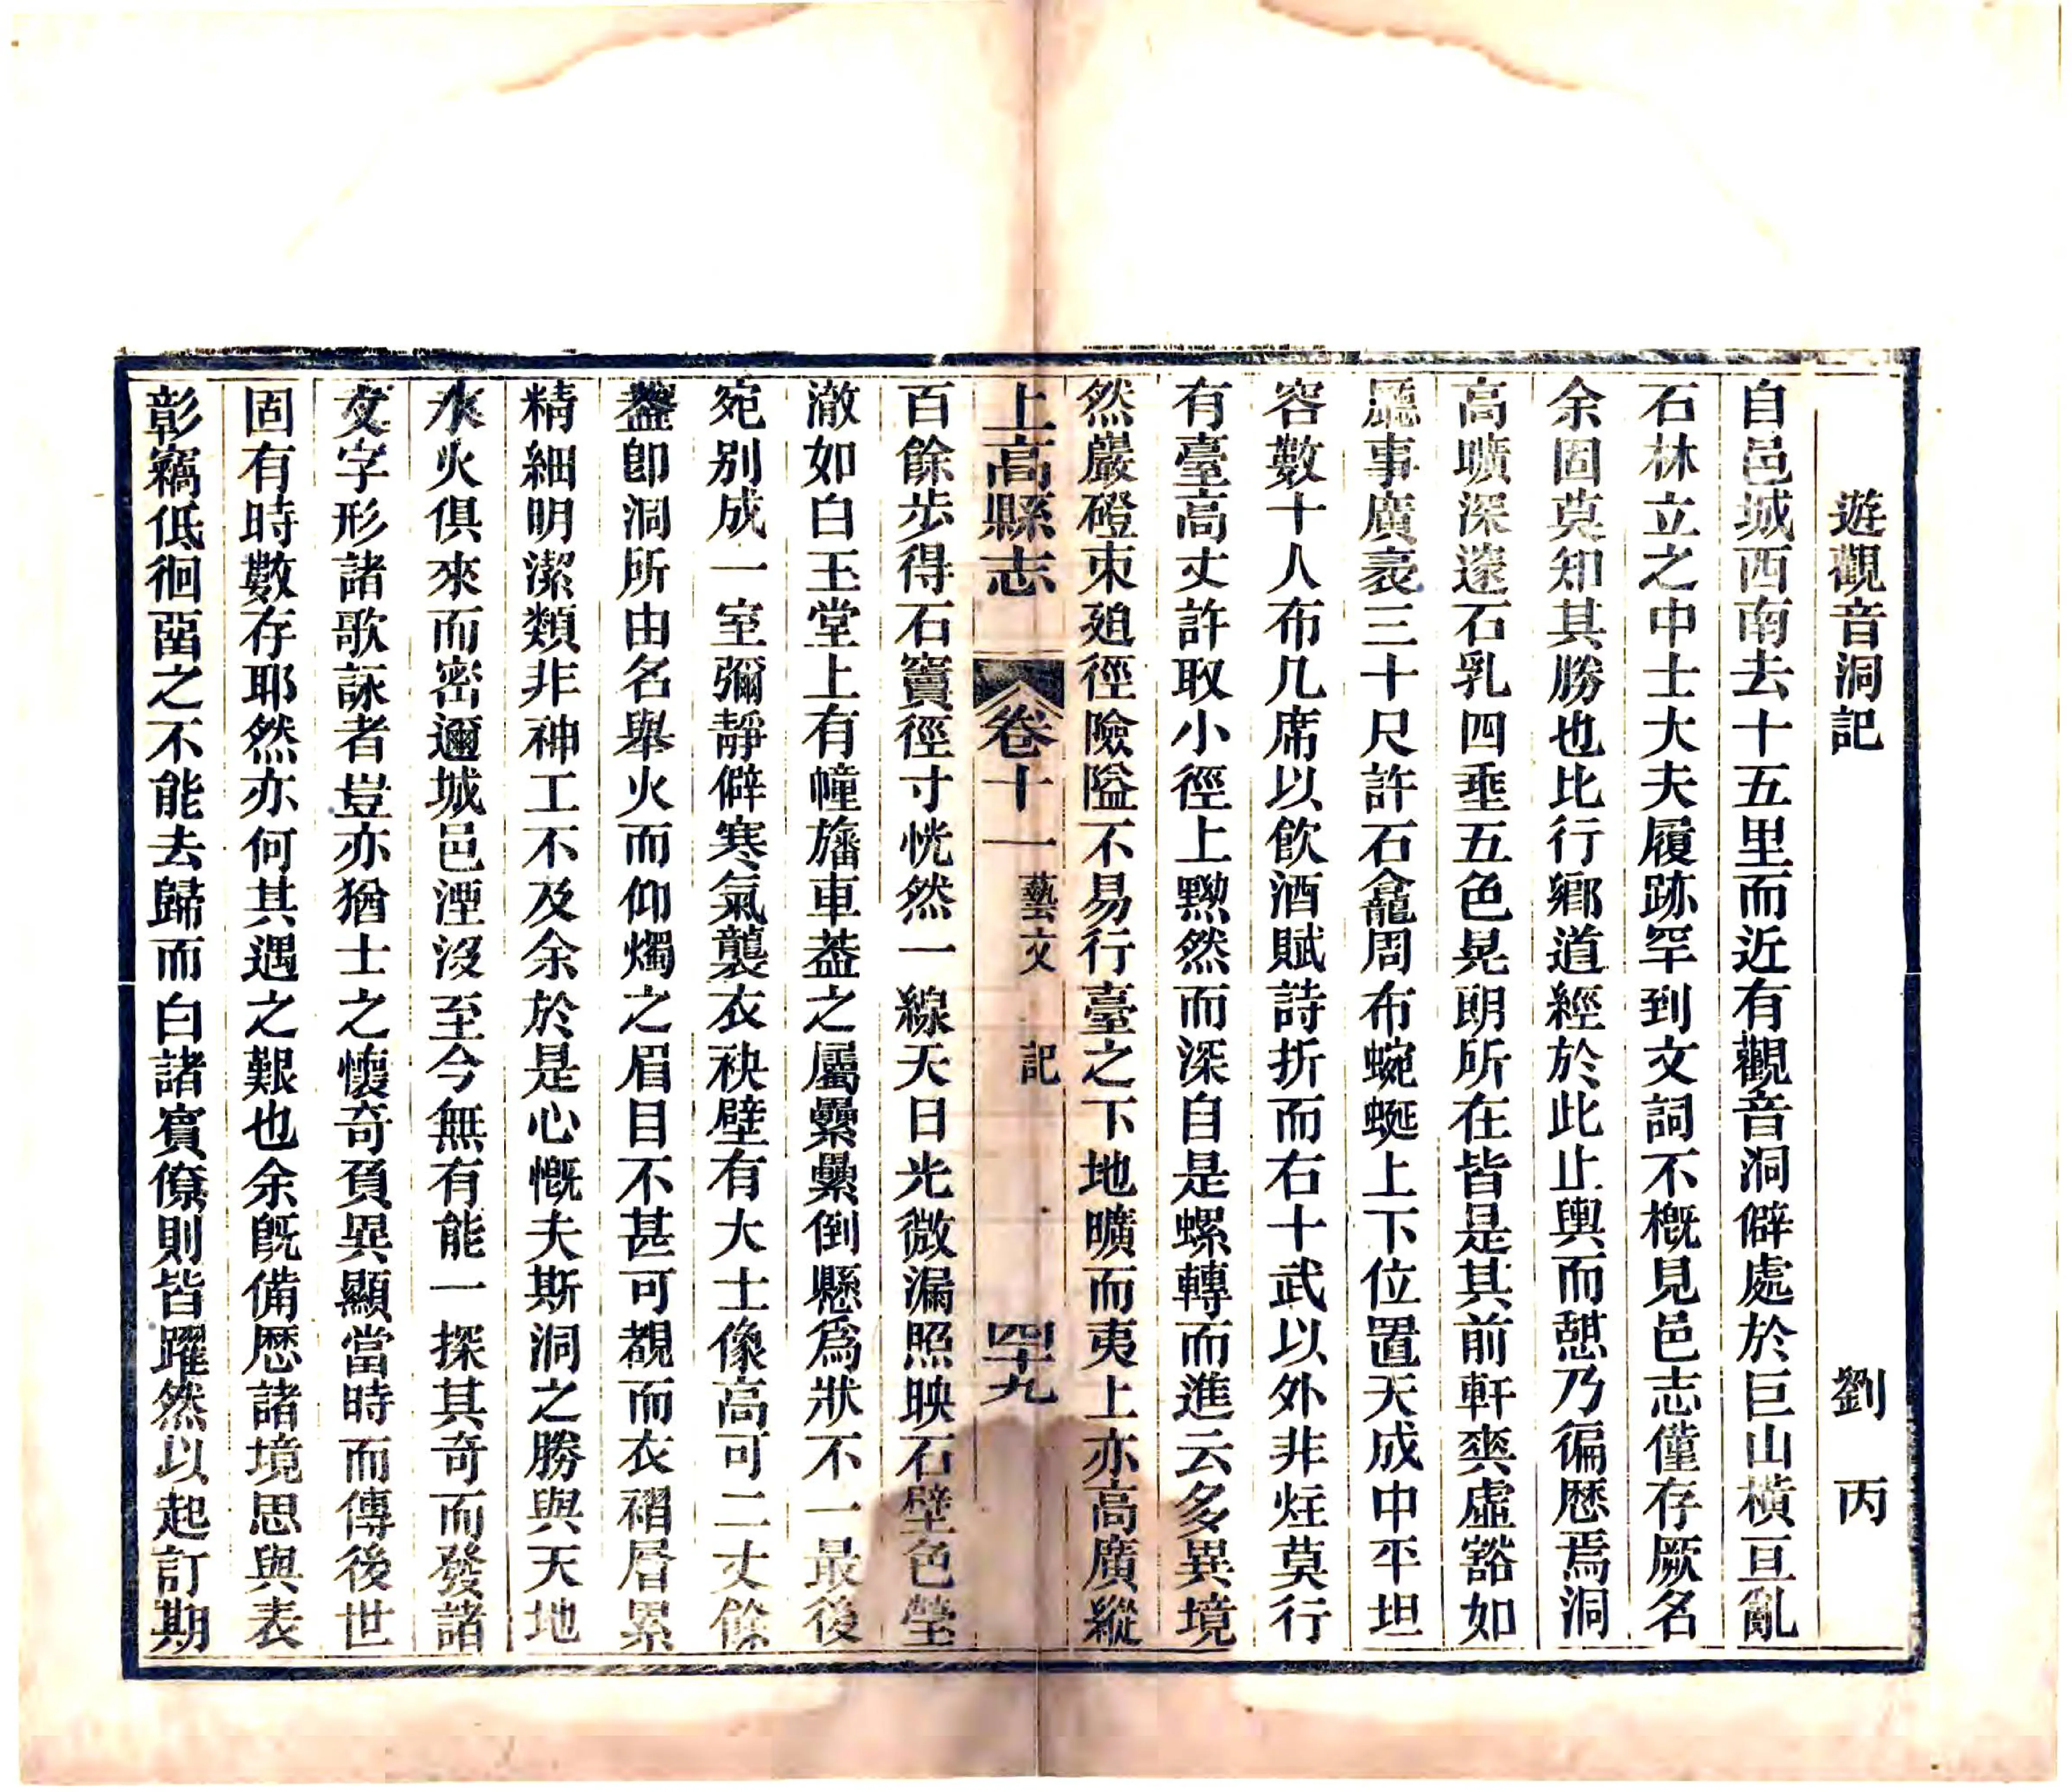 遊觀音洞記 劉丙
自邑城西南去十五里而近有觀音洞僻處於巨山橫亘亂
石林立之中士大夫履跡罕到文詞不概見邑志僅存厥名
余固莫知其勝也比行鄉道經於此止輿而憩乃徧歷焉洞
高曠深邃石乳四垂五色晃朗所在皆是其前軒爽虛豁如
廳事廣袤三十尺許石龕周布蜿蜒上下位置天成中平坦
容數十人布几席以飲酒賦詩折而右十武以外非炷莫行
有臺高丈許取小徑上黝然而深自是螺轉而進云多異境
然巖磴束廹徑險隘不易行臺之下地曠而夷上亦高廣縱
上高縣志 卷十一 藝文 記 四十九
百餘步得石竇徑寸恍然一線天日光微漏照映石壁色瑩
澈如白玉堂上有幢旛車葢之屬纍纍倒懸爲狀不一最後
宛別成一室彌靜僻寒氣襲衣袂壁有大士像高可二丈餘
葢卽洞所由名舉火而仰燭之眉目不甚可覩而衣褶層累
精細明潔類非神工不及余於是心慨夫斯洞之勝與天地
水火俱來而密邇城邑湮沒至今無有能一探其奇而發諸
文字形諸歌詠者豈亦猶士之懷奇負異顯當時而傳後世
固有時數存耶然亦何其遇之艱也余旣備歷諸境思與表
彰竊低徊畱之不能去歸而白諸賓僚則皆躍然以起訂期